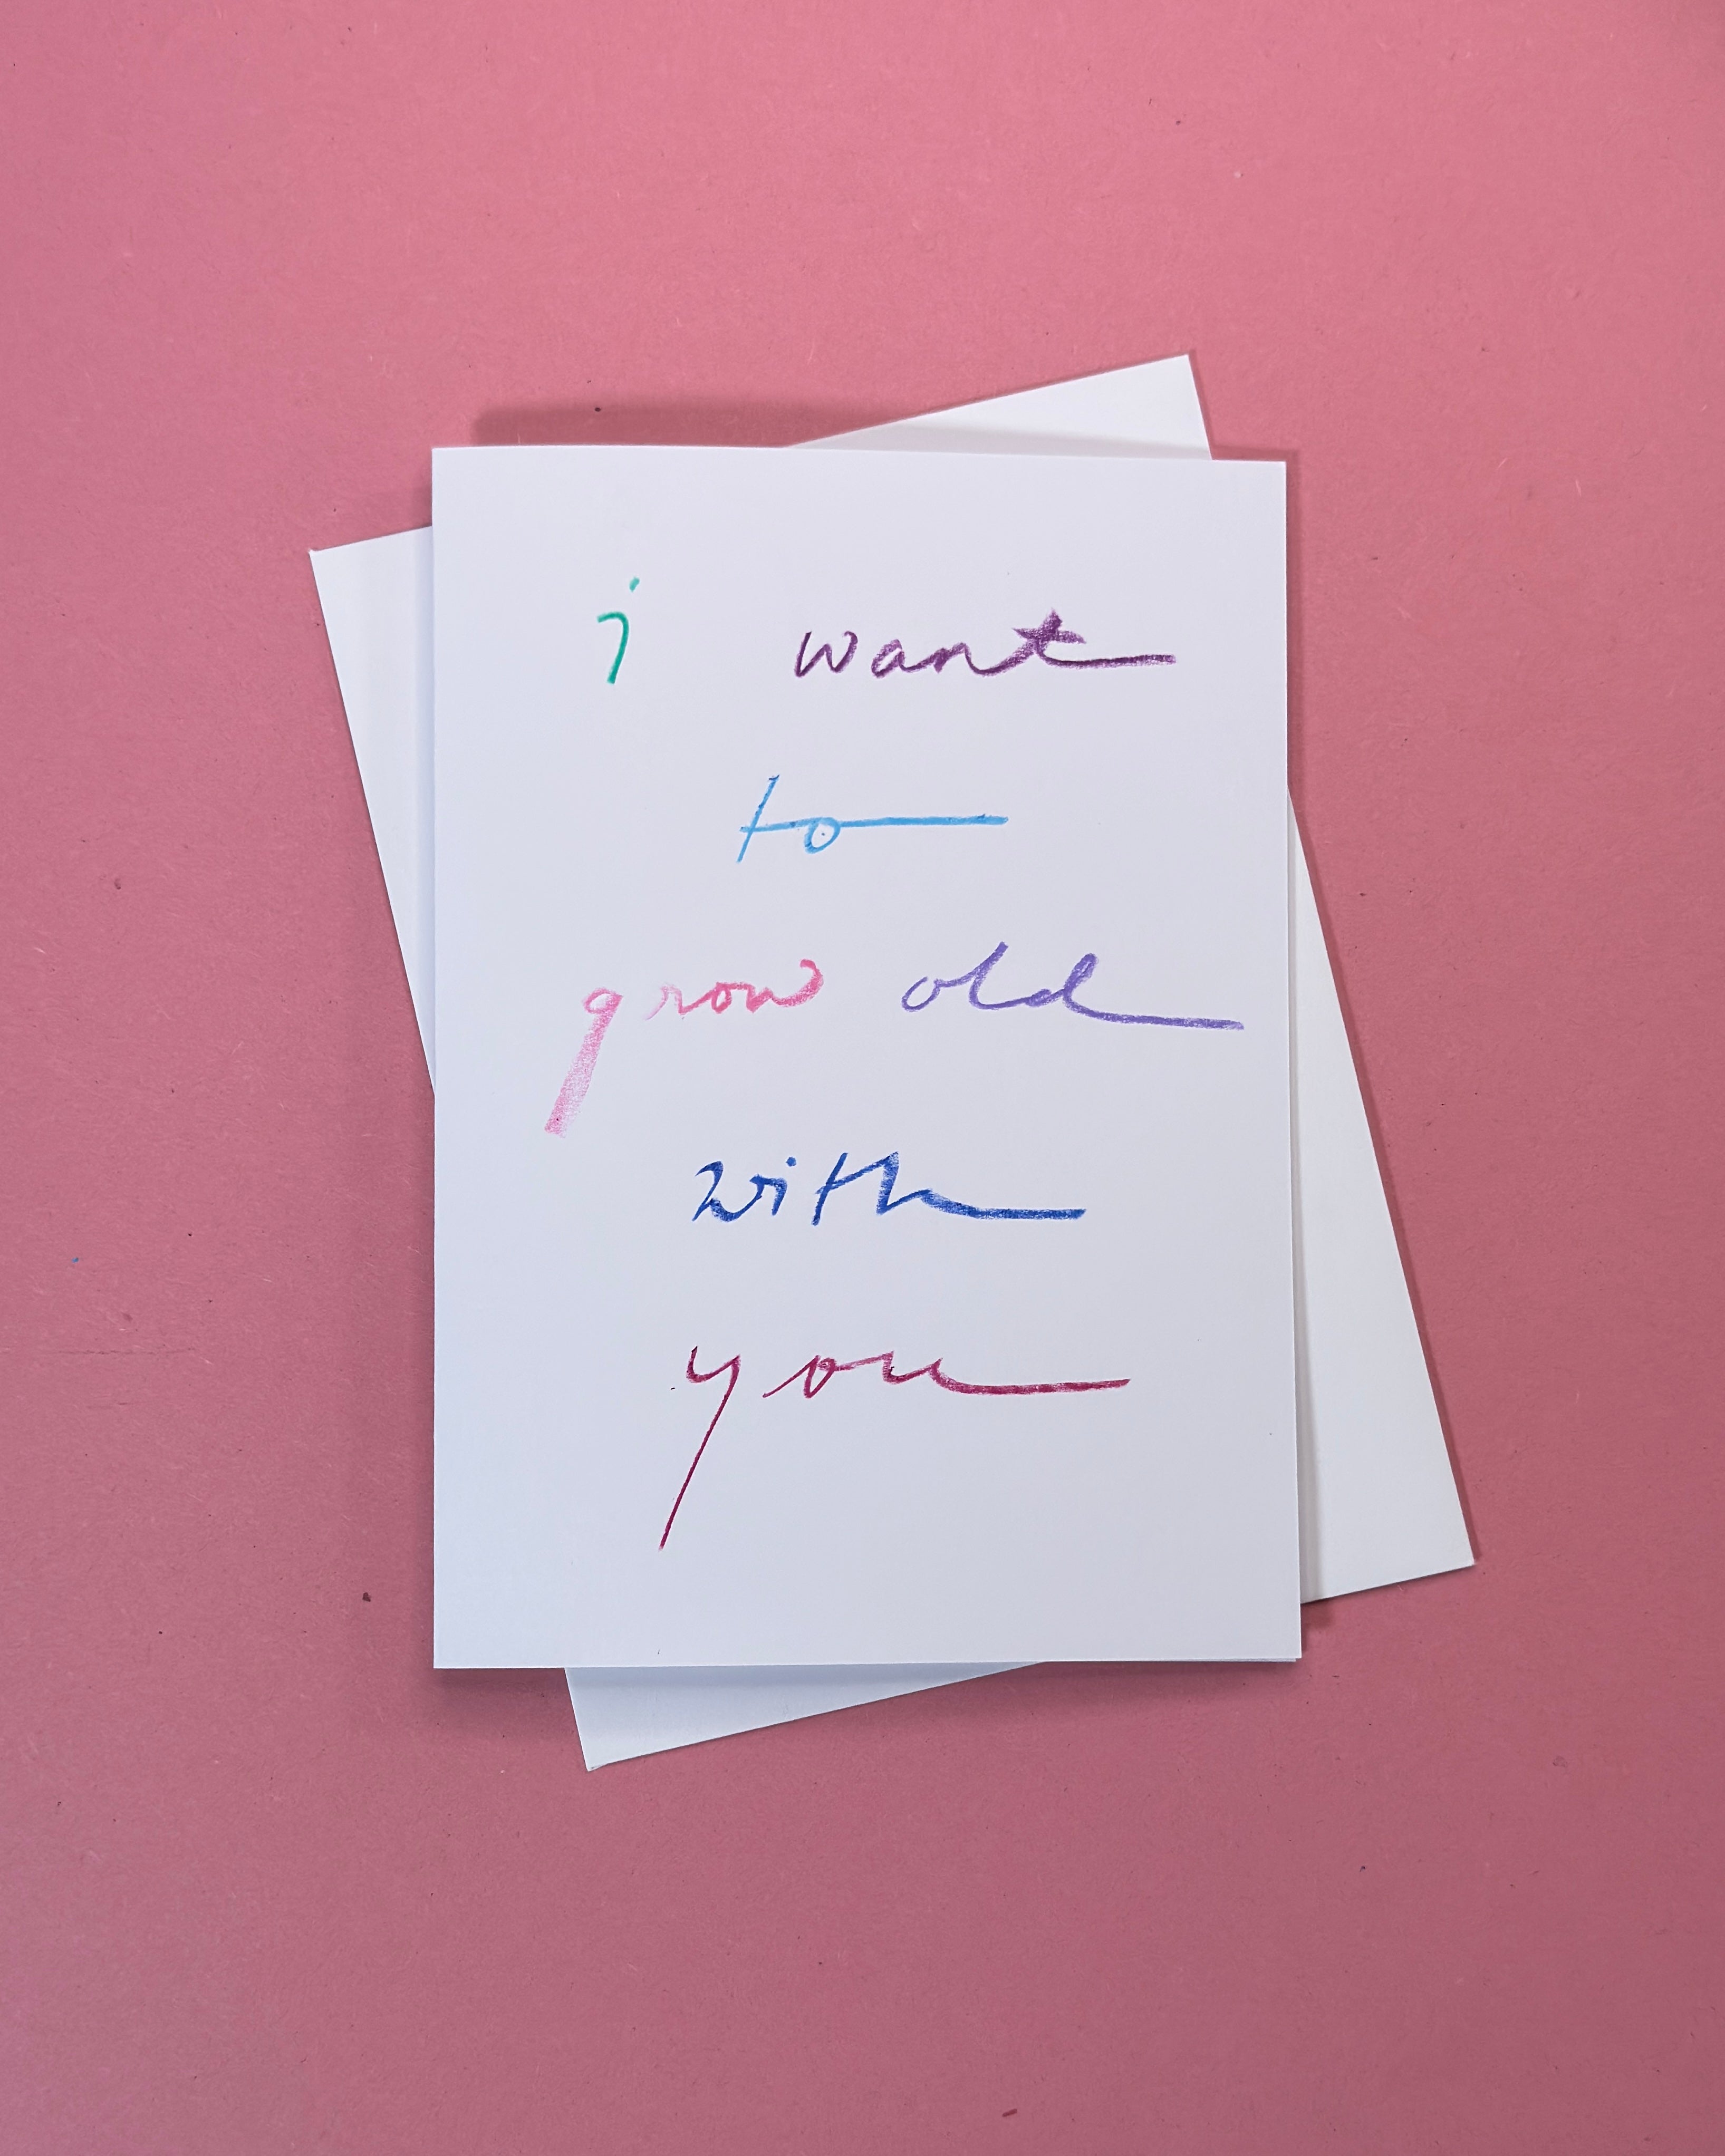 i want
to
grow old
with
you